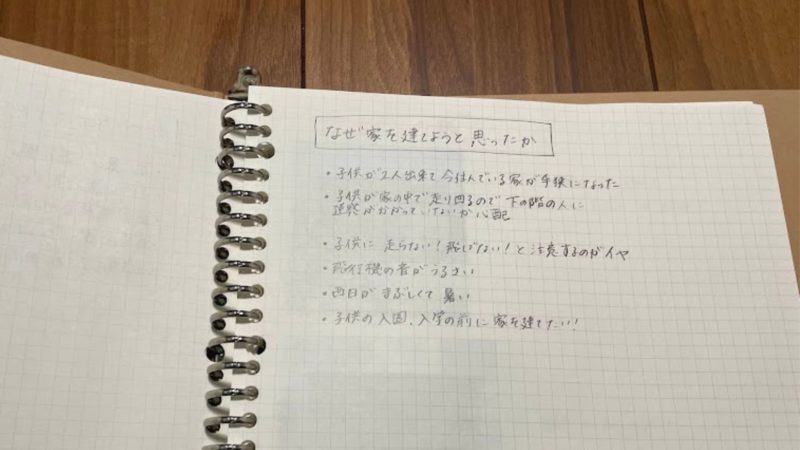 なぜ家を建てようと思ったか
・子供が2人出来て今住んでいる家が手狭になった
・子供が家の中で走り回るので下の階の人に
迷惑がかかっていないか心配
・子供に走らない!飛ばない!と注意するのがイヤ
・飛行機の音がうるさい
・西日がまぶしくて暑い
・子供の入園、入学の前に家を建てたい!